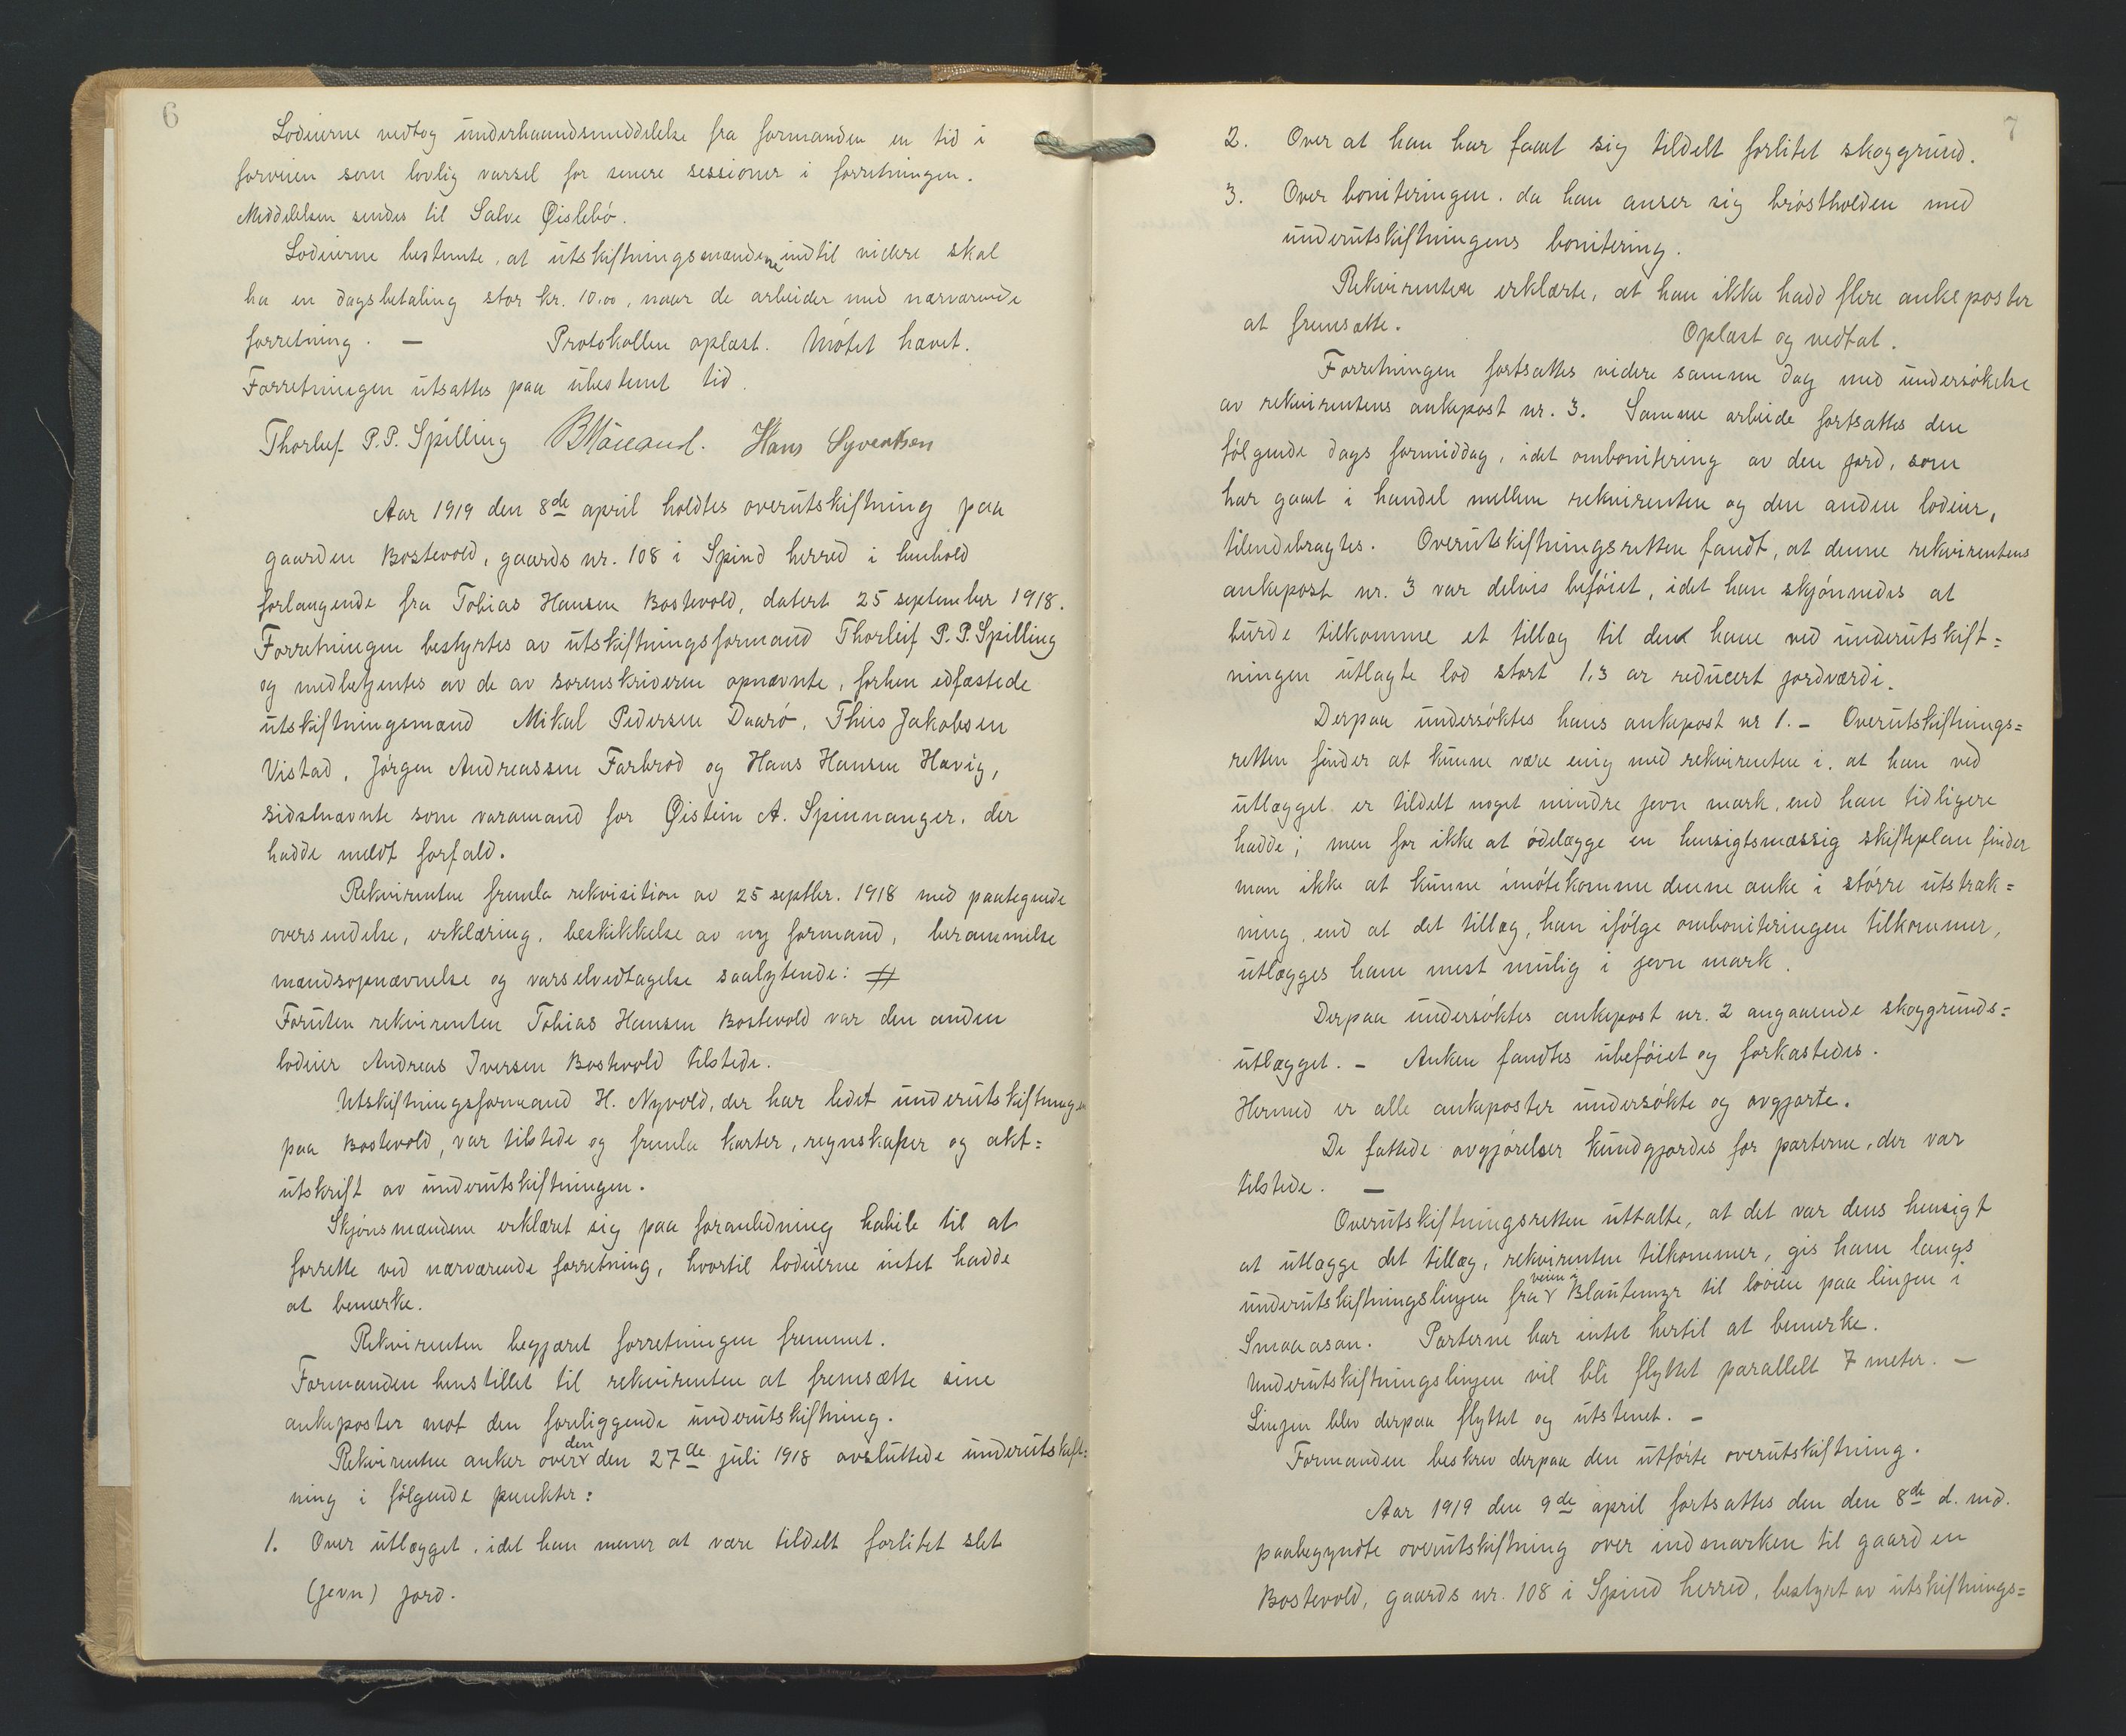 6
Lodeierne vedtog underhaandsmeddelelse fra formanden en tid i
forveien som lovlig varsel for senere sessioner i forretningen.
Meddelelsen sendes til Salve Øislebö.
Lodeierne bestemte, at utskiftningsmændene indtil videre skal
ha en dagsbetaling stor kr. 10.00, naar de arbeider med nærværende
forretning. — Protokollen oplæst. Mötet hævet.
Forretningen utsattes paa ubestemt tid.
Thorleif P. P. Spilling Hans Syvertsen
Aar 1919 den 8de april holdtes overutskiftning paa
gaarden Bostevold, gaards nr. 108 i Spind herred i henhold
forlangende fra Tobias Hansen Bostevold, datert 25 september 1918.
Forretningen bestyrtes av utskiftningsformand Thorleif P. P. Spilling
og medbetjentes av de av sorenskriveren opnævnte, forhen edfæstede
utskiftningsmænd Mikal Pedersen Daarö, Thius Jakobsen
Vistad, Jörgen Andreassen Farbrod og Hans Hansen Havig,
sidstnævnte som varamand for Øistein A. Spinnanger, der
hadde meldt forfald.
Rekvirenten fremla rekvisition av 25 septbr. 1918 med paategnede
oversendelse, erklæring, beskikkelse av ny formand, berammelse
mandsopnævnelse og varselvedtagelse saalytende: #
Foruten rekvirenten Tobias Hansen Bostevold var den anden
lodeier Andreas Iversen Bostevold tilstede.
Utskiftningsformand H. Nyvold, der har ledet underutskiftningen
paa Bostevold, var tilstede og fremla karter, regnskaper og akt=
utskrift av underutskiftningen.
Skjönsmændene erklæret sig paa foranledning habile til at
forrette ved nærværende forretning, hvortil lodeierne intet hadde
at bemerke.
Rekvirenten begjæret forretningen fremmet.
Formanden henstillet til rekvirenten at fremsætte sine
ankeposter mot den foreliggende underutskiftning.
Rekvirenten anker over den den 27de juli 1918 avsluttede underutskift=
ning i fölgende punkter:
1. Over utlægget, idet han mener at være tildelt forlitet slet
(jevn) jord.
7
2. Over at han har faaet sig tildelt forlitet skoggrund.
3. Over boniteringen, da han anser sig bröstholden med
underutskiftningens bonitering.
Rekvirenten erklærte, at han ikke hadd flere ankeposter
at fremsætte. Oplæst og vedtat.
Forretningen fortsattes videre samme dag med undersökelse
av rekvirentens ankepost nr. 3. Samme arbeide fortsattes den
fölgende dags formiddag, idet ombonitering av den jord, som
har gaaet i handel mellem rekvirenten og den anden lodeier,
tilendebragtes. Overutskiftningsretten fandt, at denne rekvirentens
ankepost nr. 3 var delvis beföiet, idet han skjönnedes at
burde tilkomme et tillæg til den ham ved underutskift=
ningen utlagte lod stort 1,3 ar reducert jordværdi.
Derpaa undersöktes hans ankepost nr 1. — Overutskiftnings=
retten finder at kunne være enig med rekvirenten i, at han ved
utlægget er tildelt noget mindre jevn mark, end han tidligere
hadde; men for ikke at ödelægge en hensigtsmæssig skifteplan finder
man ikke at kunne imötekomme denne anke i större utstræk=
ning, end at det tillæg, han ifölge omboniteringen tilkommer,
utlægges ham mest mulig i jevn mark.
Derpaa undersöktes ankepost nr. 2 angaaende skoggrunds=
utlægget. — Anken fandtes ubeföiet og forkastedes.
Hermed er alle ankeposter undersökte og avgjorte.
De fattede avgjörelser kundgjordes for parterne, der var
tilstede. —
Overutskiftningsretten uttalte, at det var dens hensigt
at utlægge det tillæg, rekvirenten tilkommer, gis ham langs
underutskiftningslinjen fra veien i Blautemyr til löien paa linjen i
Smaaasan. Parterne har intet hertil at bemerke.
Underutskiftningslinjen vil bli flyttet parallelt 7 meter. —
Linjen blev derpaa flyttet og utstenet. —
Formanden beskrev derpaa den utförte overutskiftning.
Aar 1919 den 9de april fortsattes den den 8de d. md.
paabegyndte overutskiftning over indmarken til gaarden
Bostevold, gaards nr. 108 i Spind herred, bestyrt av utskiftnings=